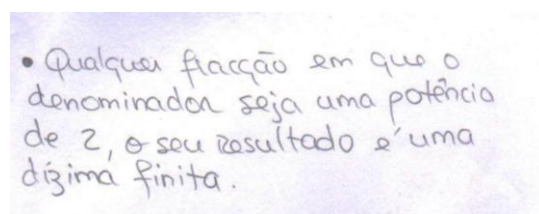 • Qualquer fracção em que o
denominador seja uma potência
de 2, o seu resultado é uma
dízima finita.